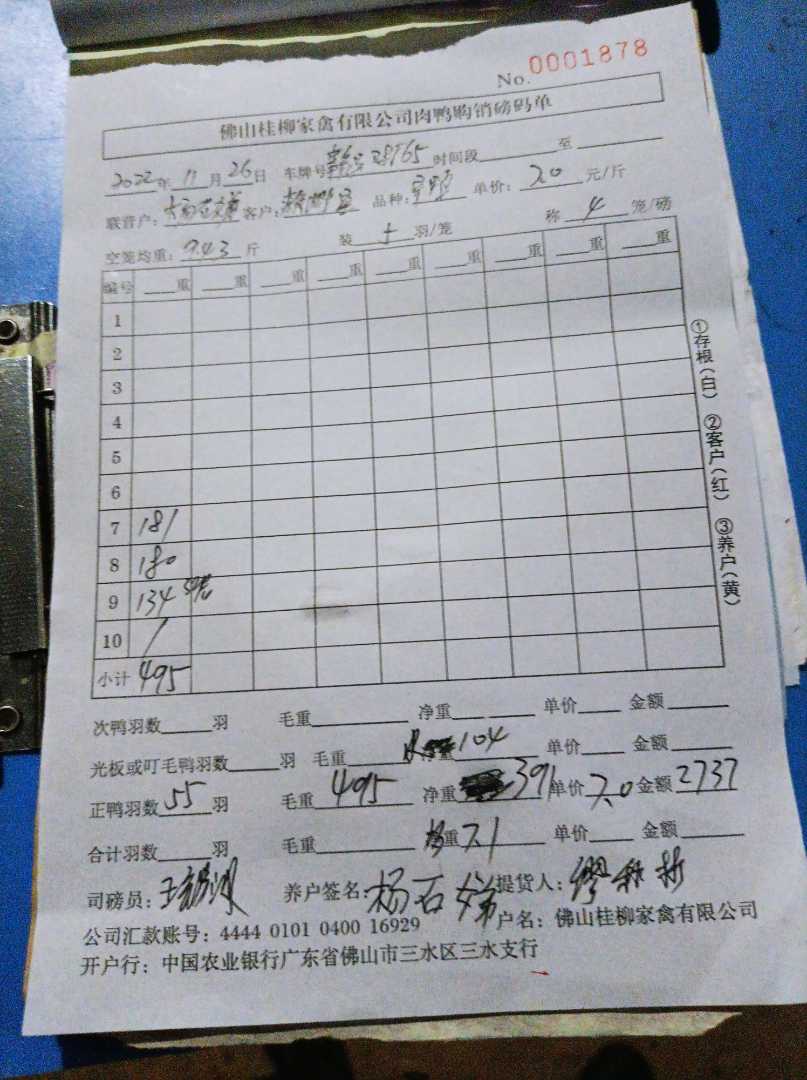 No. 0001878
佛山桂柳家禽有限公司肉鸭购销磅码单
2022年11月26日 车牌号 时间段 至
联营户: 客户: 品种: 单价: 7.0 元/斤
空笼均重: 9.43 斤 装 5 羽/笼 称 4 笼/磅
编号 重 重 重 重 重 重 重 重 重
1
2
3
4
5
6
7 181
8 180
9 134
10 /
小计 495
次鸭羽数 羽 毛重 净重 单价 金额
光板或叮毛鸭羽数 羽 毛重 104 单价 金额
正鸭羽数 55 羽 毛重 495 净重 391 单价 7.0 金额 2737
合计羽数 羽 毛重 重 7.1 单价 金额
司磅员: 养户签名: 杨石 提货人:
公司汇款账号: 4444 0101 0400 16929 户名: 佛山桂柳家禽有限公司
开户行: 中国农业银行广东省佛山市三水区三水支行
①存根(白) ②客户(红) ③养户(黄)